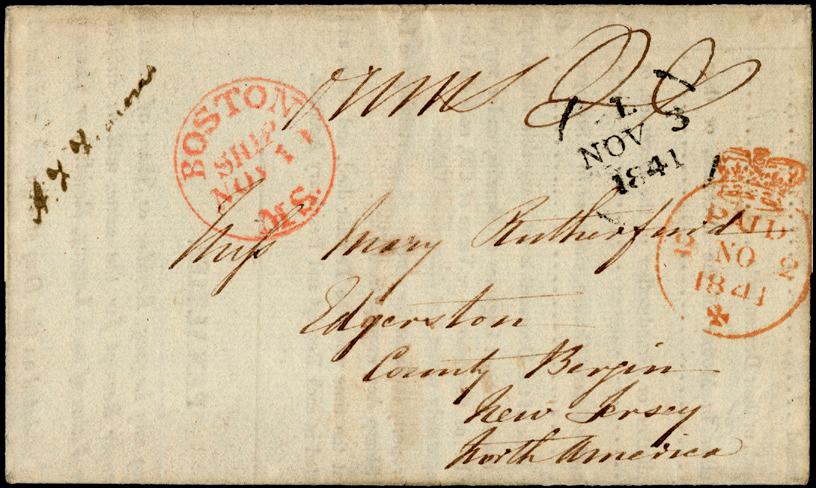 BOSTON
SHIP
NOV
MS.
L
NOV 3
1841
PAID
NO
1841
Miss Mary Rutherfurd
Edgerston
County Bergin
New Jersey
North America